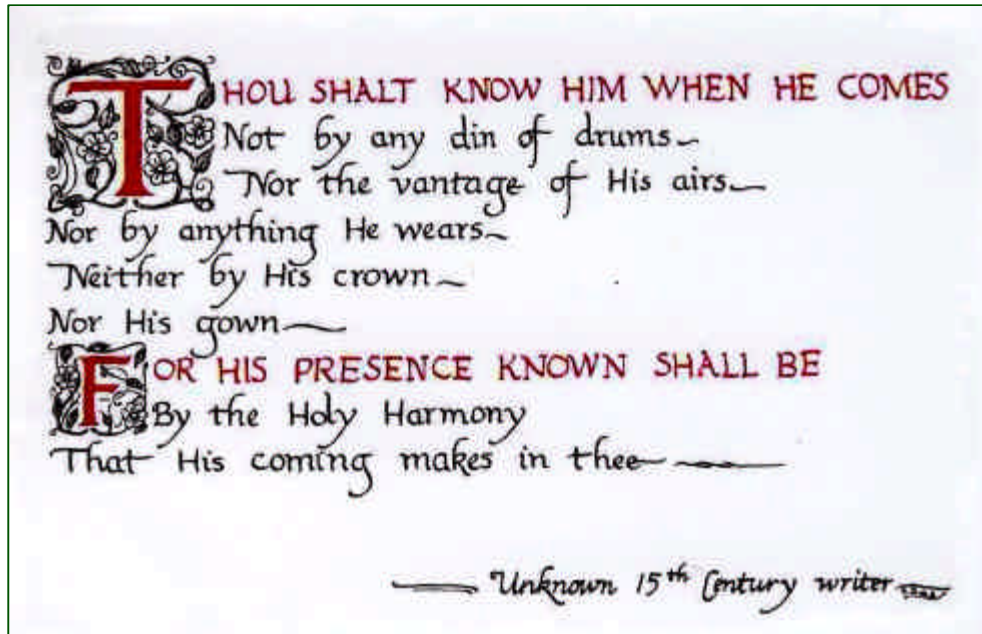 THOU SHALT KNOW HIM WHEN HE COMES
Not by any din of drums
Nor the vantage of His airs
Nor by anything He wears
Neither by His crown
Nor His gown
FOR HIS PRESENCE KNOWN SHALL BE
By the Holy Harmony
That His coming makes in thee
Unknown 15th Century writer